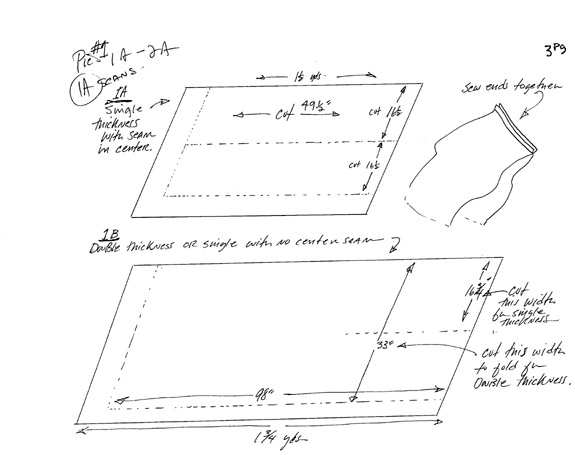 Pic #1 1A - 2A
3 Pg
1A SCANS.
1A
Single
thickness
with seam
in center.
1½ yds.
cut 49½"
cut 16½
cut 16½
sew ends together
1B
Double thickness or single with no center seam
16¾"
cut
this width
for single
thickness
33"
cut this width
to fold for
Double thickness.
98"
1¾ yds